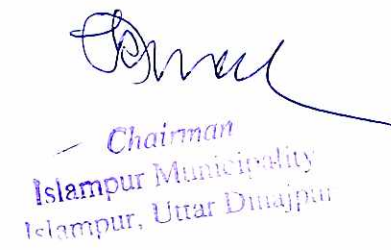 Chairman
Islampur Municipality
Islampur, Uttar Dinajpur